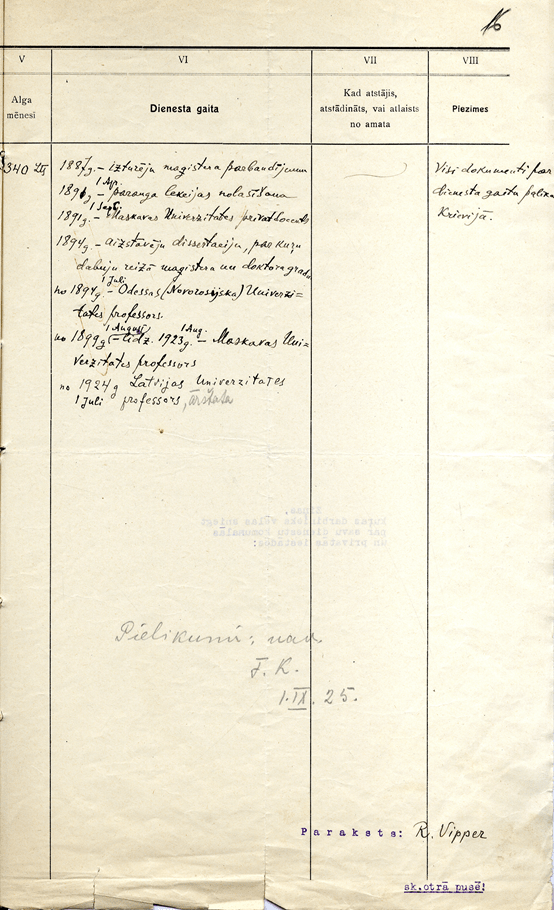 16
V
VI
VII
VIII
Alga
mēnesī
Dienesta gaita
Kad atstājis,
atstādināts, vai atlaists
no amata
Piezīmes
340 Ls
1887g. – izturēju magistera pārbaudījumu
1 Apr.
1891g. – parauga lekcijas nolasīšana
1 Sept.
1891g. – Maskavas Universitates privatdocents
1894g. – aizstāvēju dissertaciju, par kuŗu
dabuju reizā magistera un doktora gradu
1 Juli
no 1894g. – Odesas (Novorosijska) Universi=
tates professors.
1 August 1 Aug.
no 1899g. – līdz 1923g. – Maskavas Uni=
verzitates professors
no 1924g Latvijas Universitates
1 Juli professors, ārštata
Visi dokumenti par
dienesta gaitu palika
Krievijā.
Pielikumu: nav
F. K.
1.IX.25.
Paraksts: R. Vipper
sk.otrā pusē!